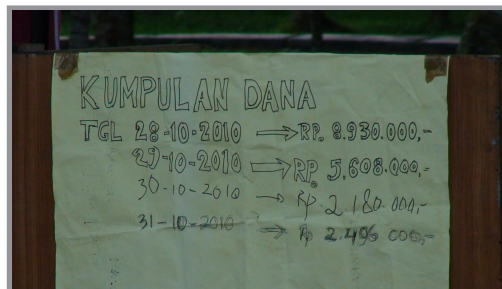 KUMPULAN DANA
TGL 28-10-2010 → RP. 8.930.000,-
29-10-2010 → RP. 5.608.000,-
30-10-2010 → Rp. 2.180.000,-
31-10-2010 → Rp 2.496.000,-